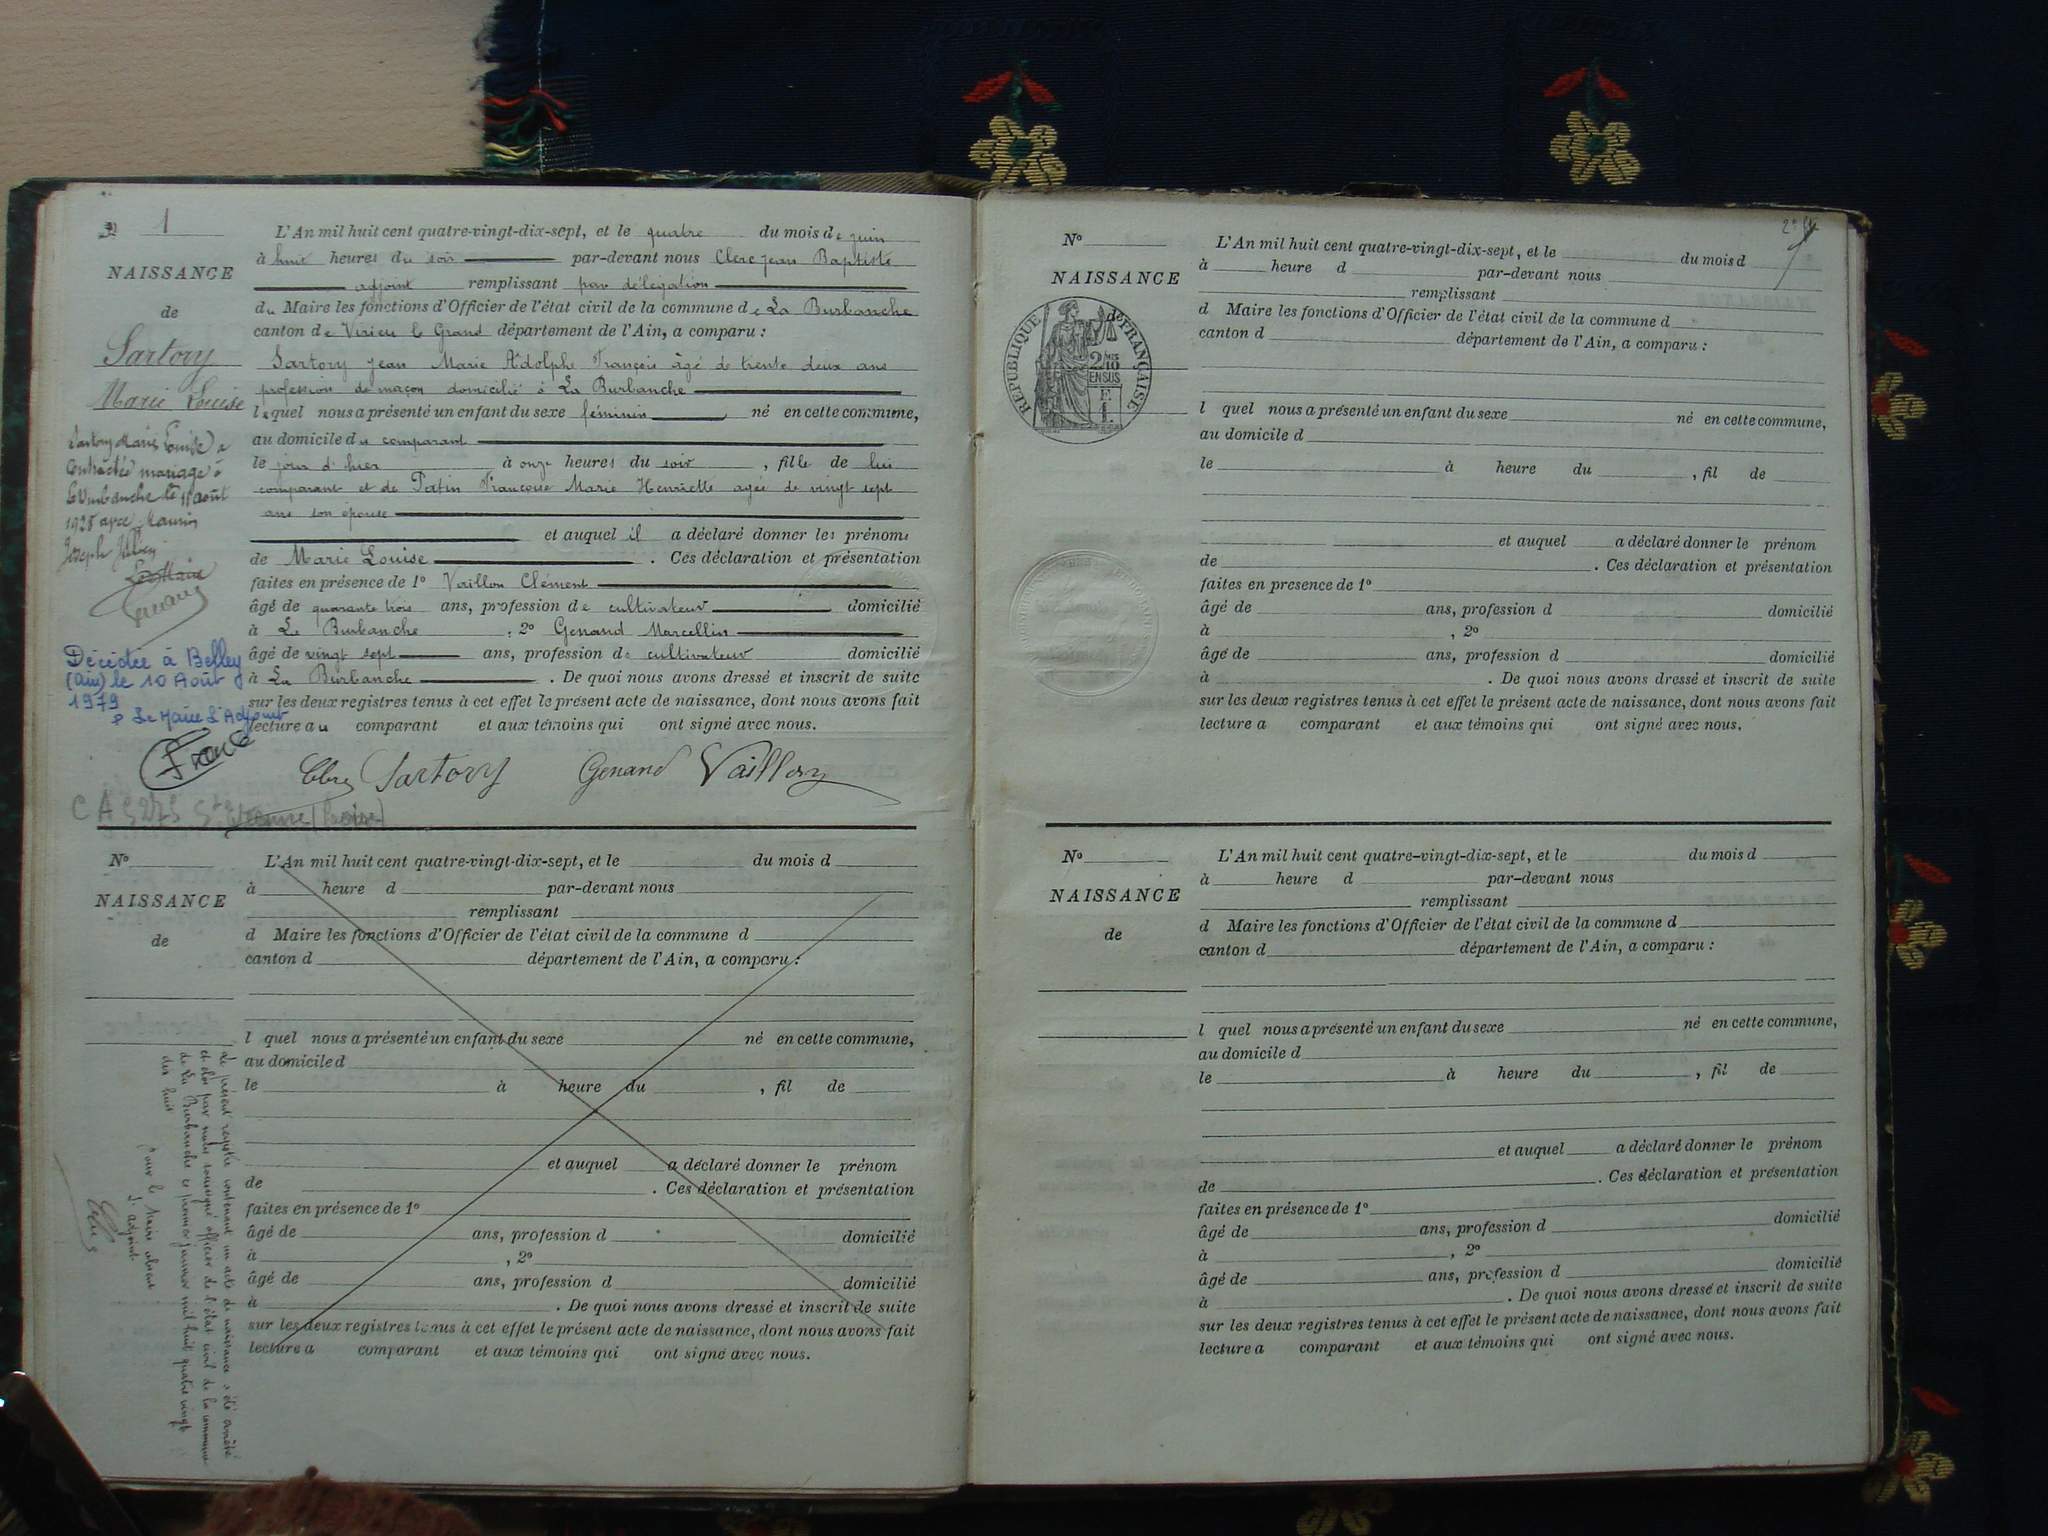 1
NAISSANCE
de
Sartory
Marie Louise
L'An mil huit cent quatre-vingt-dix-sept, et le quatre du mois de juin
à huit heures du soir par-devant nous Clerc Jean Baptiste
adjoint remplissant par délégation
du Maire les fonctions d'Officier de l'état civil de la commune de La Burbanche
canton de Virieu le Grand département de l'Ain, a comparu :
Sartory Jean Marie Adolphe François âgé de trente deux ans
profession de maçon domicilié à La Burbanche
lequel nous a présenté un enfant du sexe féminin né en cette commune,
au domicile du comparant
le jour d'hier à onze heures du soir, fille de lui
comparant et de Patin Françoise Marie Henriette agée de vingt sept
ans son épouse
et auquel il a déclaré donner les prénoms
de Marie Louise. Ces déclaration et présentation
faites en présence de 1º Vaillon Clément
âgé de quarante trois ans, profession de cultivateur domicilié
à La Burbanche, 2º Genand Marcellin
âgé de vingt sept ans, profession de cultivateur domicilié
à La Burbanche. De quoi nous avons dressé et inscrit de suite
sur les deux registres tenus à cet effet le présent acte de naissance, dont nous avons fait
lecture au comparant et aux témoins qui ont signé avec nous.
Sartory Genand Vaillon
Sartory Marie Louise a
contractée mariage à
La Burbanche le 11 août
1928 avec
Joseph
Le Maire
Décédée à Belley
(Ain) le 10 Août
1979
P Le Maire L'Adjoint
Nº
NAISSANCE
de
L'An mil huit cent quatre-vingt-dix-sept, et le du mois d
à heure d par-devant nous
remplissant
d Maire les fonctions d'Officier de l'état civil de la commune d
canton d département de l'Ain, a comparu :
l quel nous a présenté un enfant du sexe né en cette commune,
au domicile d
le à heure du , fil de
et auquel a déclaré donner le prénom
de . Ces déclaration et présentation
faites en présence de 1º
âgé de ans, profession d domicilié
à , 2º
âgé de ans, profession d domicilié
à . De quoi nous avons dressé et inscrit de suite
sur les deux registres tenus à cet effet le présent acte de naissance, dont nous avons fait
lecture a comparant et aux témoins qui ont signé avec nous.
Le présent registre contenant un acte de naissance a été arrêté
et clos par nous soussigné officier de l'état civil de la commune
de La Burbanche ce premier janvier mil huit quatre vingt
dix huit
Pour le Maire absent
L'adjoint
Nº
NAISSANCE
de
RÉPUBLIQUE FRANÇAISE
2/10
EN SUS
L'An mil huit cent quatre-vingt-dix-sept, et le du mois d
à heure d par-devant nous
remplissant
d Maire les fonctions d'Officier de l'état civil de la commune d
canton d département de l'Ain, a comparu :
l quel nous a présenté un enfant du sexe né en cette commune,
au domicile d
le à heure du , fil de
et auquel a déclaré donner le prénom
de . Ces déclaration et présentation
faites en presence de 1º
âgé de ans, profession d domicilié
à , 2º
âgé de ans, profession d domicilié
à . De quoi nous avons dressé et inscrit de suite
sur les deux registres tenus à cet effet le présent acte de naissance, dont nous avons fait
lecture a comparant et aux témoins qui ont signé avec nous.
Nº
NAISSANCE
de
L'An mil huit cent quatre-vingt-dix-sept, et le du mois d
à heure d par-devant nous
remplissant
d Maire les fonctions d'Officier de l'état civil de la commune d
canton d département de l'Ain, a comparu :
l quel nous a présenté un enfant du sexe né en cette commune,
au domicile d
le à heure du , fil de
et auquel a déclaré donner le prénom
de . Ces déclaration et présentation
faites en présence de 1º
âgé de ans, profession d domicilié
à , 2º
âgé de ans, profession d domicilié
à . De quoi nous avons dressé et inscrit de suite
sur les deux registres tenus à cet effet le présent acte de naissance, dont nous avons fait
lecture a comparant et aux témoins qui ont signé avec nous.